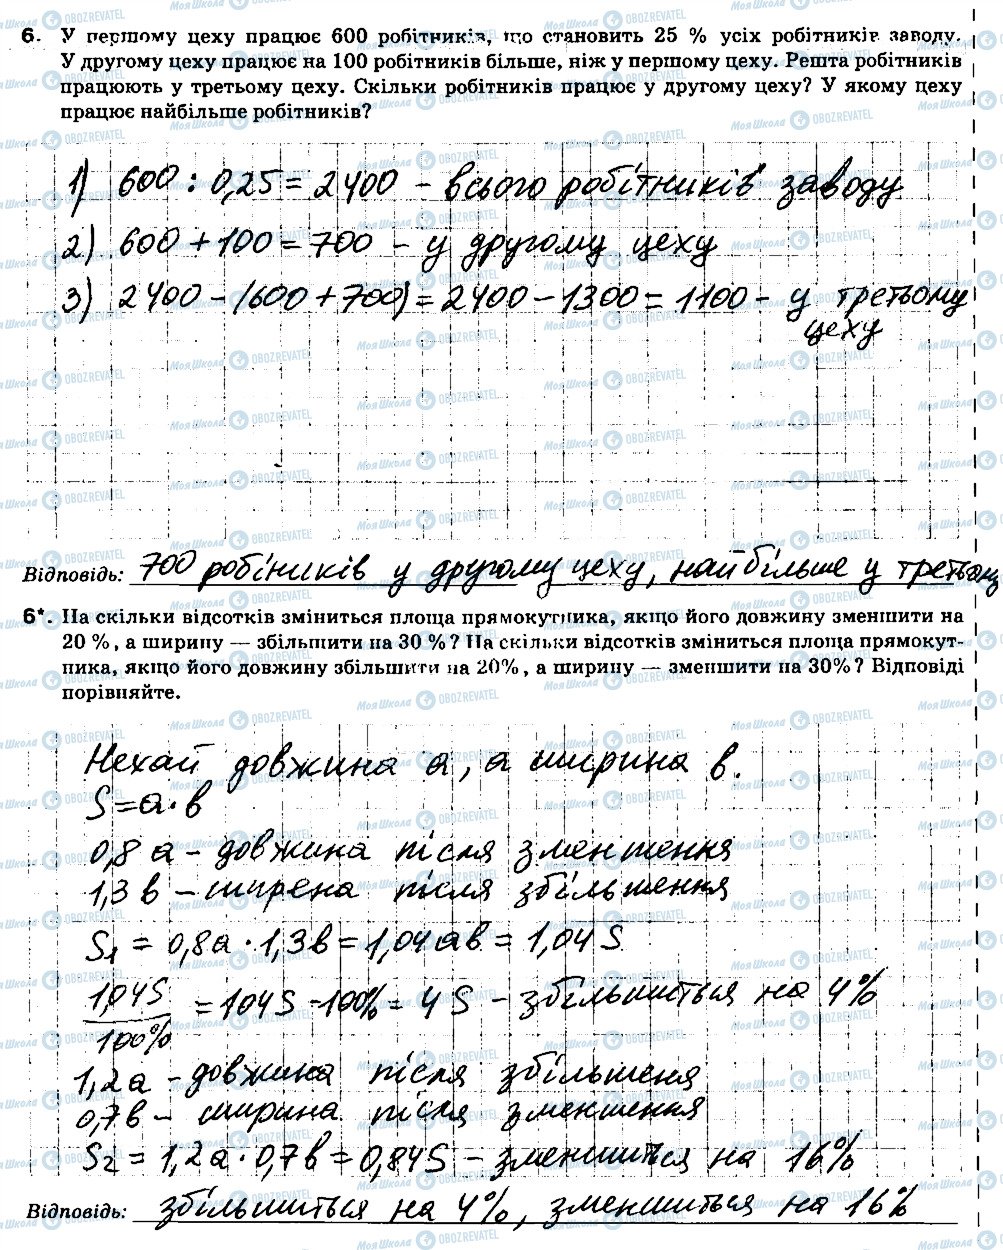 6. У першому цеху працює 600 робітників, що становить 25 % усіх робітників заводу.
У другому цеху працює на 100 робітників більше, ніж у першому цеху. Решта робітників
працюють у третьому цеху. Скільки робітників працює у другому цеху? У якому цеху
працює найбільше робітників?
1) 600 : 0,25 = 2400 - всього робітників заводу
2) 600 + 100 = 700 - у другому цеху
3) 2400 - (600 + 700) = 2400 - 1300 = 1100 - у третьому
цеху
Відповідь: 700 робіників у другому цеху, найбільше у третьому
6*. На скільки відсотків зміниться площа прямокутника, якщо його довжину зменшити на
20 %, а ширину — збільшити на 30 %? На скільки відсотків зміниться площа прямокут-
ника, якщо його довжину збільшити на 20%, а ширину — зменшити на 30%? Відповіді
порівняйте.
Нехай довжина a, а ширина b.
S = a · b
0,8 a - довжина після зменшення
1,3 b - ширена після збільшення
S1 = 0,8a · 1,3b = 1,04ab = 1,04 S
1,04S / 100% = 104 S - 100% = 4 S - збільшиться на 4%
1,2a - довжина після збільшеня
0,7b - ширина після зменшення
S2 = 1,2a · 0,7b = 0,84S - зменшиться на 16%
Відповідь: збільшиться на 4%, зменшиться на 16%
МояШкола OBOZREVATEL